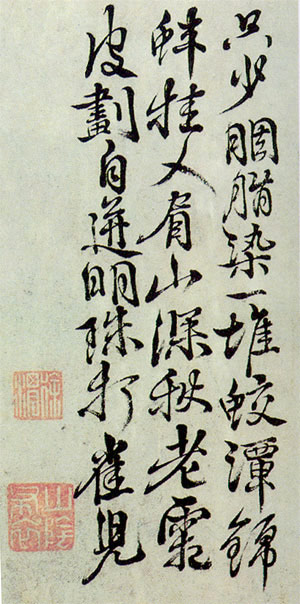 只少胭脂染一堆蛟潭錦
蚌挂人眉山深秋老
皮劃自迸明珠打雀兒
徐渭